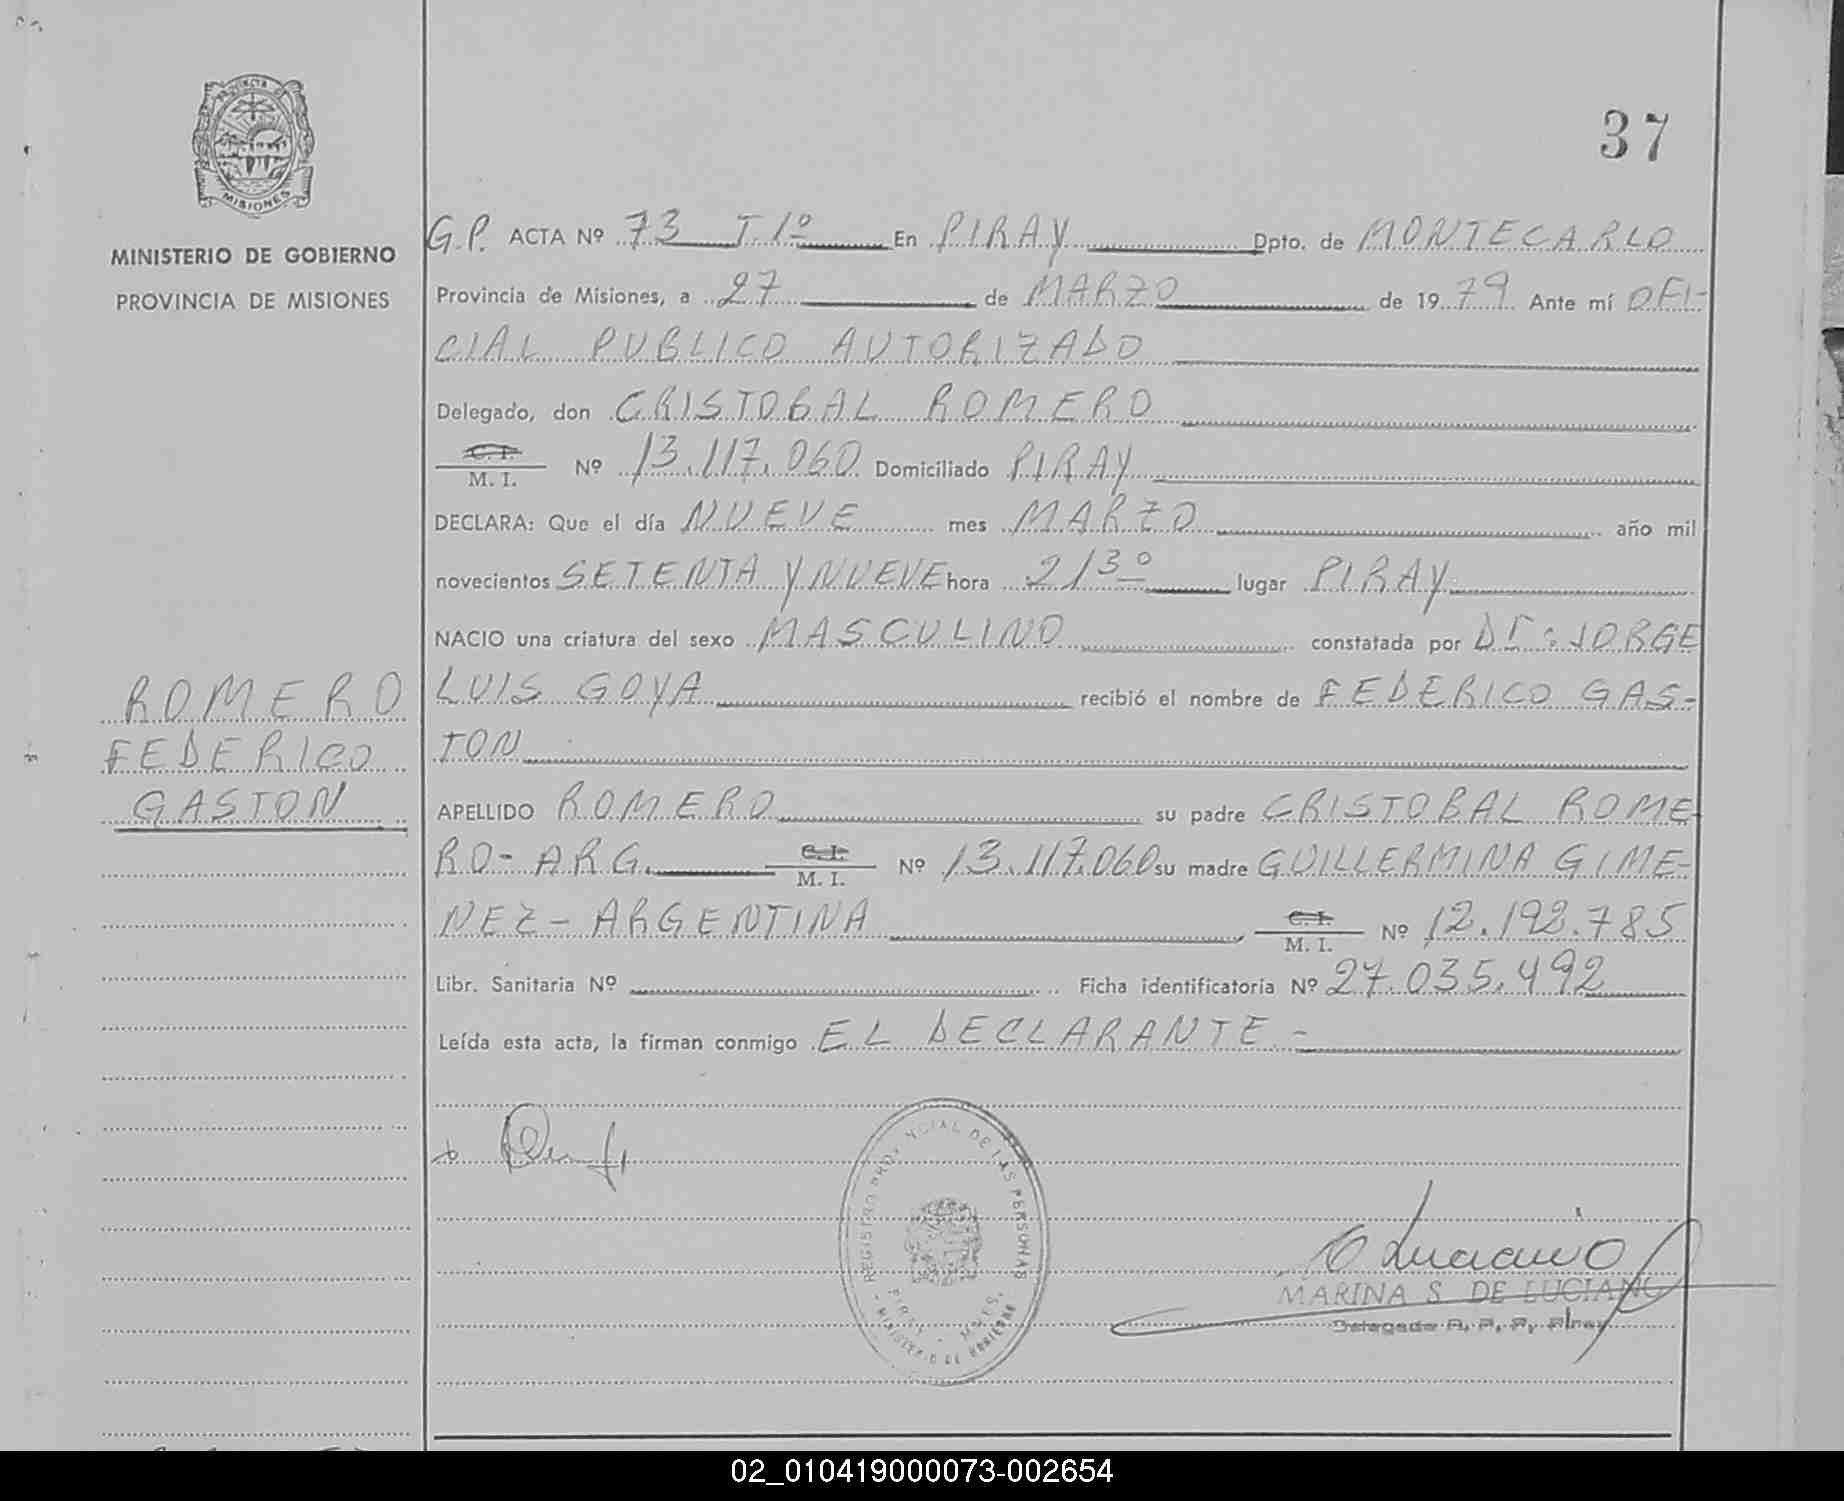 37
PROVINCIA DE
MISIONES
MINISTERIO DE GOBIERNO
PROVINCIA DE MISIONES
G.P. ACTA Nº 73 T. 1º En PIRAY Dpto. de MONTECARLO
Provincia de Misiones, a 27 de MARZO de 1979 Ante mí OFI-
CIAL PUBLICO AUTORIZADO
Delegado, don CRISTOBAL ROMERO
C. I.
M. I. Nº 13.117.060 Domiciliado PIRAY
DECLARA: Que el día NUEVE mes MARZO año mil
novecientos SETENTA Y NUEVE hora 213º lugar PIRAY
NACIO una criatura del sexo MASCULINO constatada por Dr: JORGE
LUIS GOYA recibió el nombre de FEDERICO GAS-
TON
ROMERO
FEDERICO
GASTON
APELLIDO ROMERO su padre CRISTOBAL ROME-
RO - ARG. C. I. M. I. Nº 13.117.060 su madre GUILLERMINA GIME-
NEZ - ARGENTINA C. I. M. I. Nº 12.192.785
Libr. Sanitaria Nº Ficha identificatoria Nº 27.035.492
Leída esta acta, la firman conmigo EL DECLARANTE.-
REGISTRO PROVINCIAL DE LAS PERSONAS
PIRAY - MNES.
- MINISTERIO DE GOBIERNO
Luciano
MARINA S. DE LUCIANO
Delegada R. P. P. Piray
02_010419000073-002654